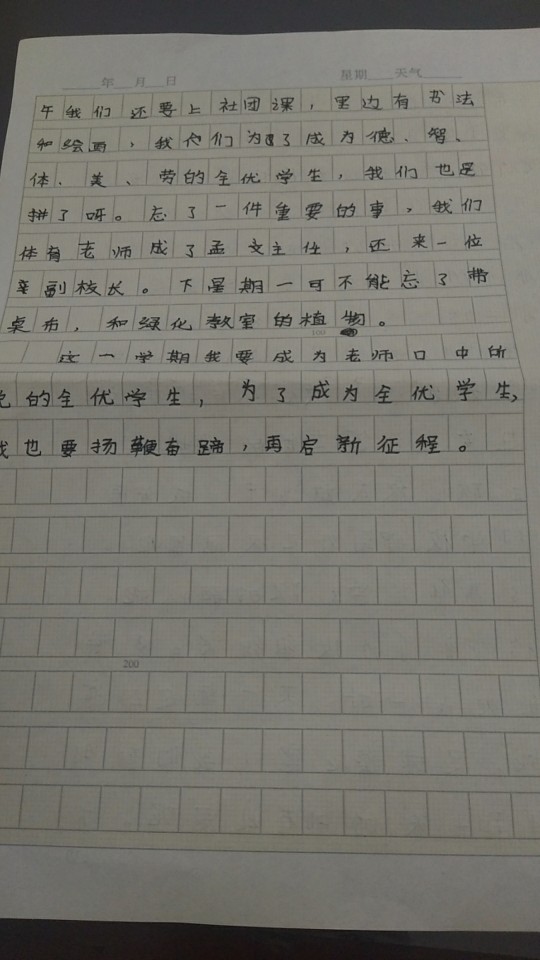 年 月 日 星期 天气
午我们还要上社团课，里边有书法
和绘画，我们为了成为德、智、
体、美、劳的全优学生，我们也是
拼了呀。忘了一件重要的事，我们
体育老师成了孟文主任，还来一位
辛副校长。下星期一可不能忘了带
桌布，和绿化教室的植物。
100
这一学期我要成为老师口中所
说的全优学生，为了成为全优学生，
我也要扬鞭奋蹄，再启新征程。
200